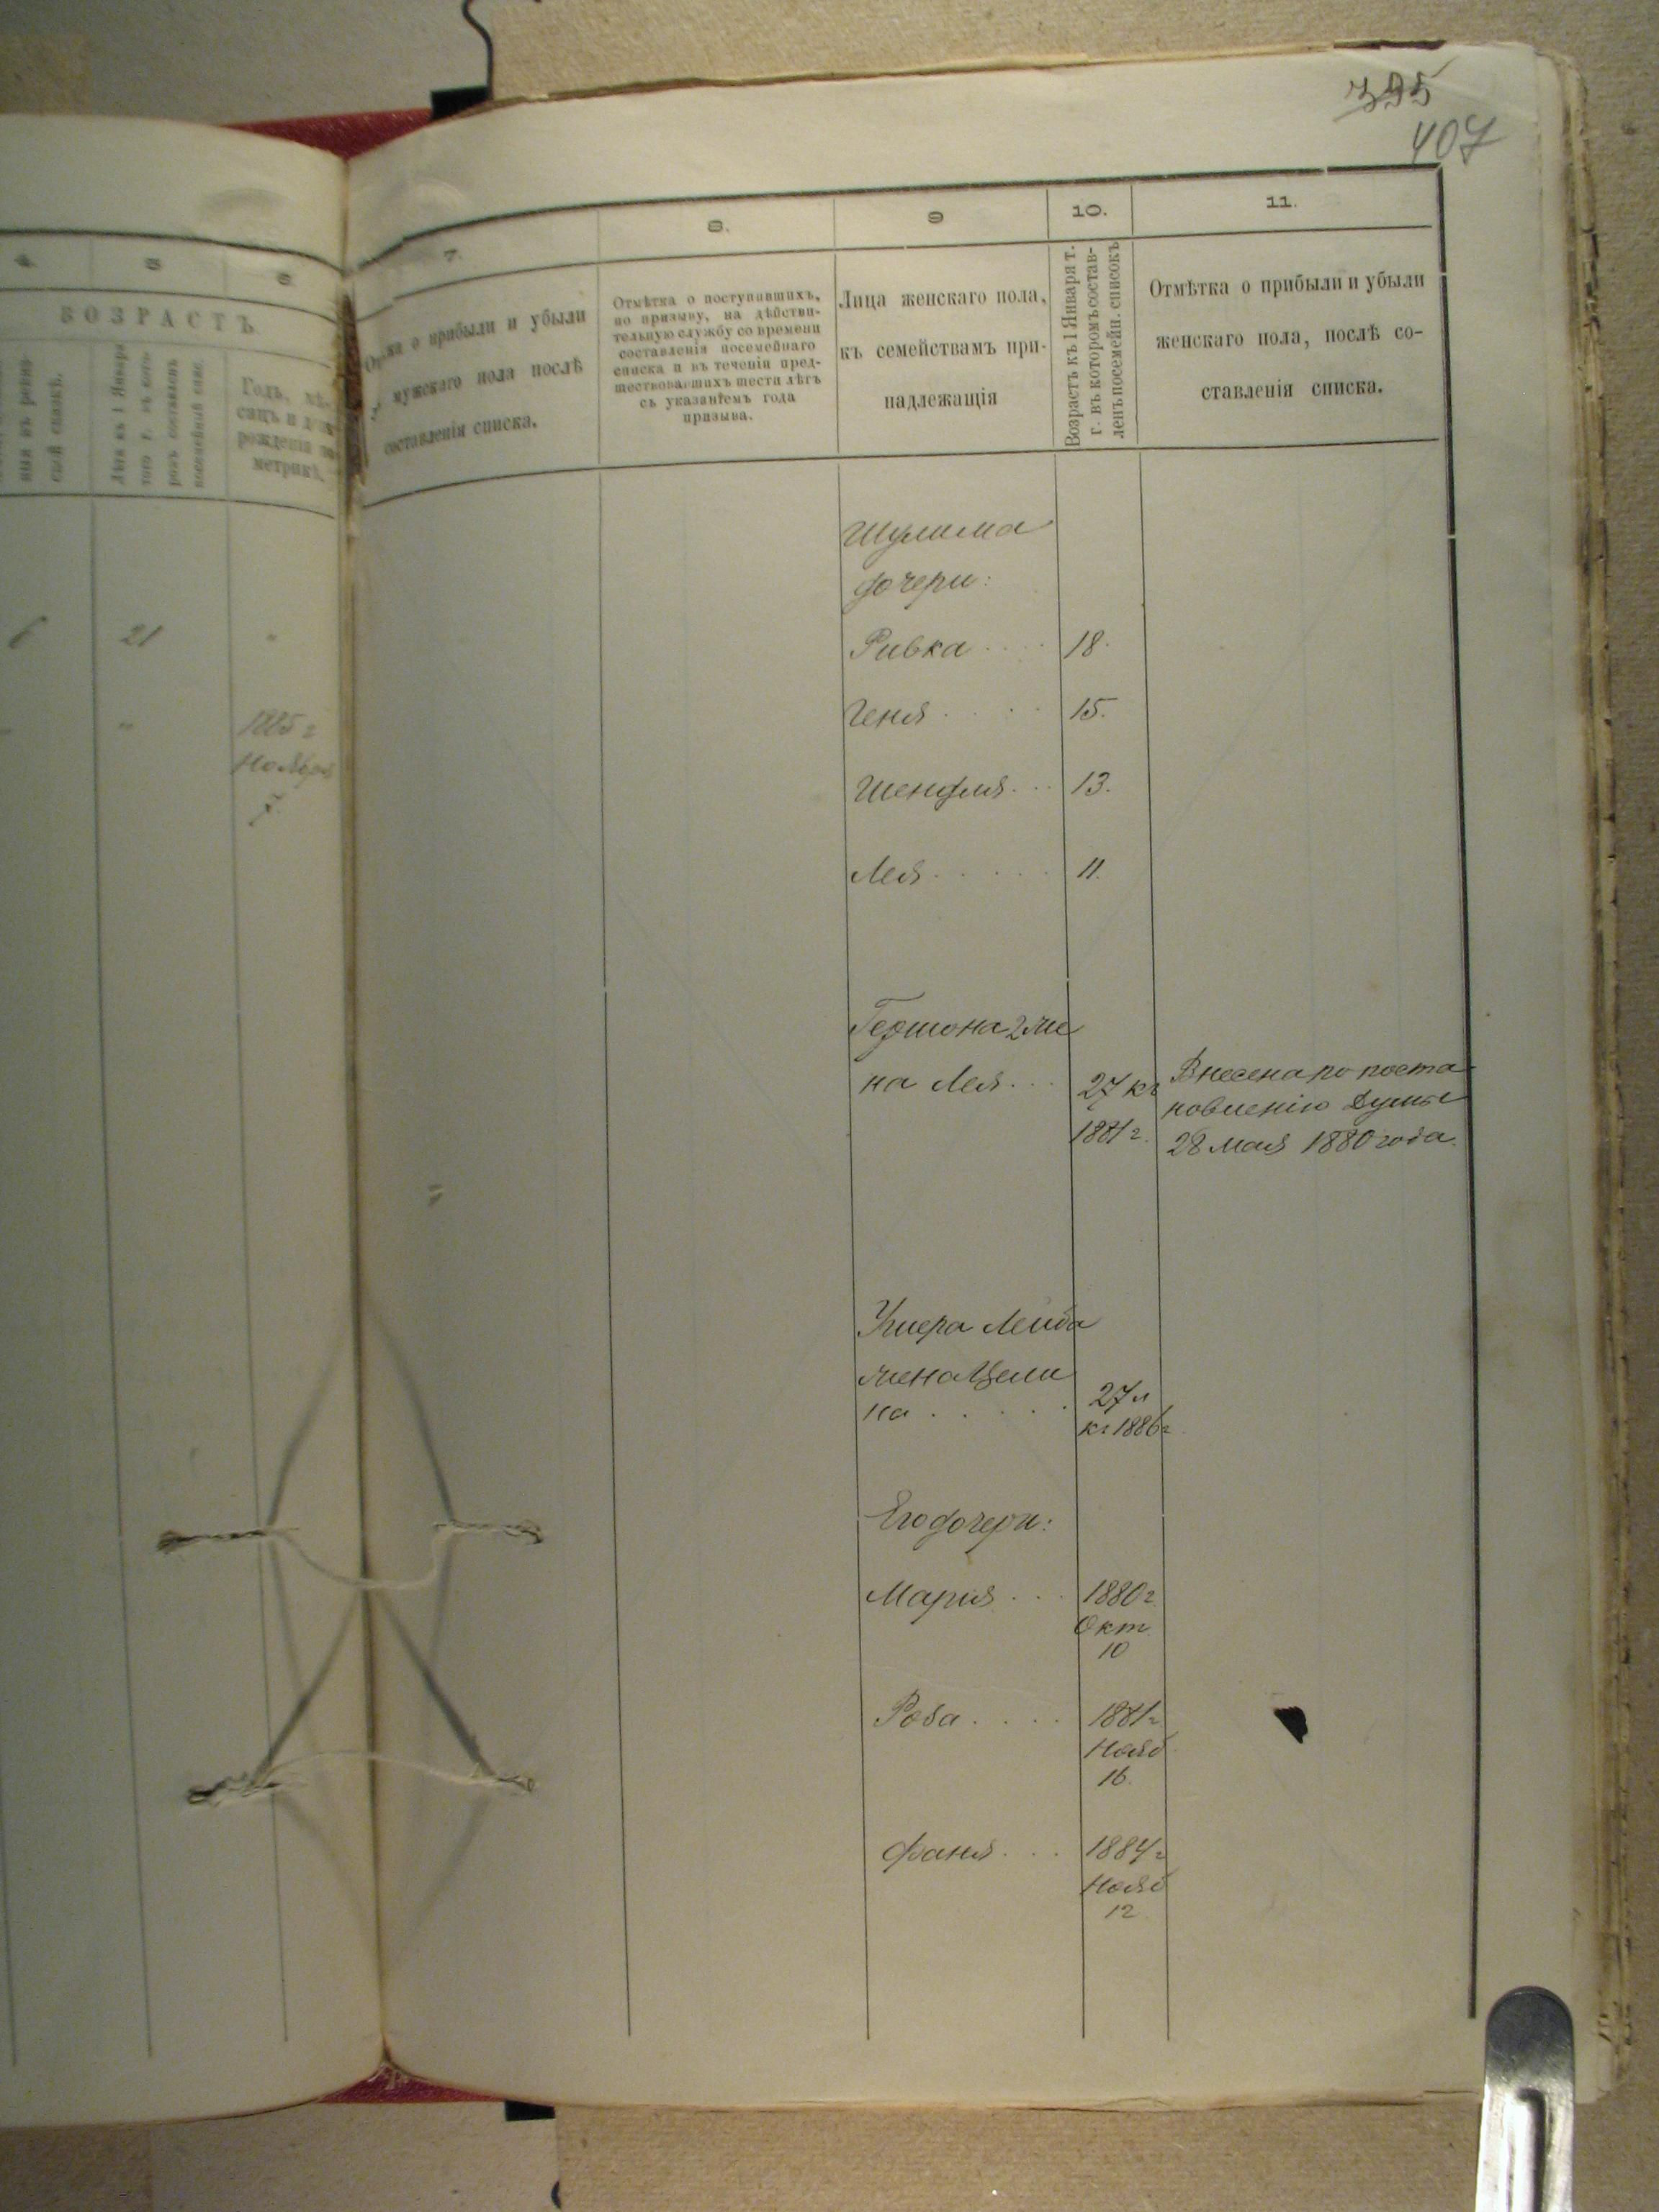 395
407
4.
5
6
ВОЗРАСТЪ
Годъ, мѣ-
сяцъ и день
рожденія по
метрикѣ.
21
"
"
1885 г
Ноября
7.
8.
9
10.
11.
о прибыли и убыли
мужскаго пола послѣ
составленія списка.
Отмѣтка о поступившихъ,
по призыву, на дѣйстви-
тельную службу со времени
составленія посемейнаго
списка и въ теченіи пред-
шествовавшихъ шести лѣтъ
съ указаніемъ года
призыва.
Лица женскаго пола,
къ семействамъ при-
надлежащія
Возрастъ къ 1 Января т.
г. въ которомъ состав-
ленъ посемейн. списокъ
Отмѣтка о прибыли и убыли
женскаго пола, послѣ со-
ставленія списка.
Шулима
дочери:
Ривка . . . . 18.
Геня . . . . 15.
Шендля . . . 13.
Лея . . . . . 11.
Гершона 2 же
на Лея . . . 27 къ
1881 г.
Внесена по поста-
новленію Думы
28 мая 1880 года.
Ушера Лейба
жена Цели
на . . . . . 27 л
къ 1886 г
Его дочери:
Мария . . . 1880 г
Окт.
10
Роза . . . . 1881 г
Нояб
16.
Фаня . . . 1884 г
Нояб
12